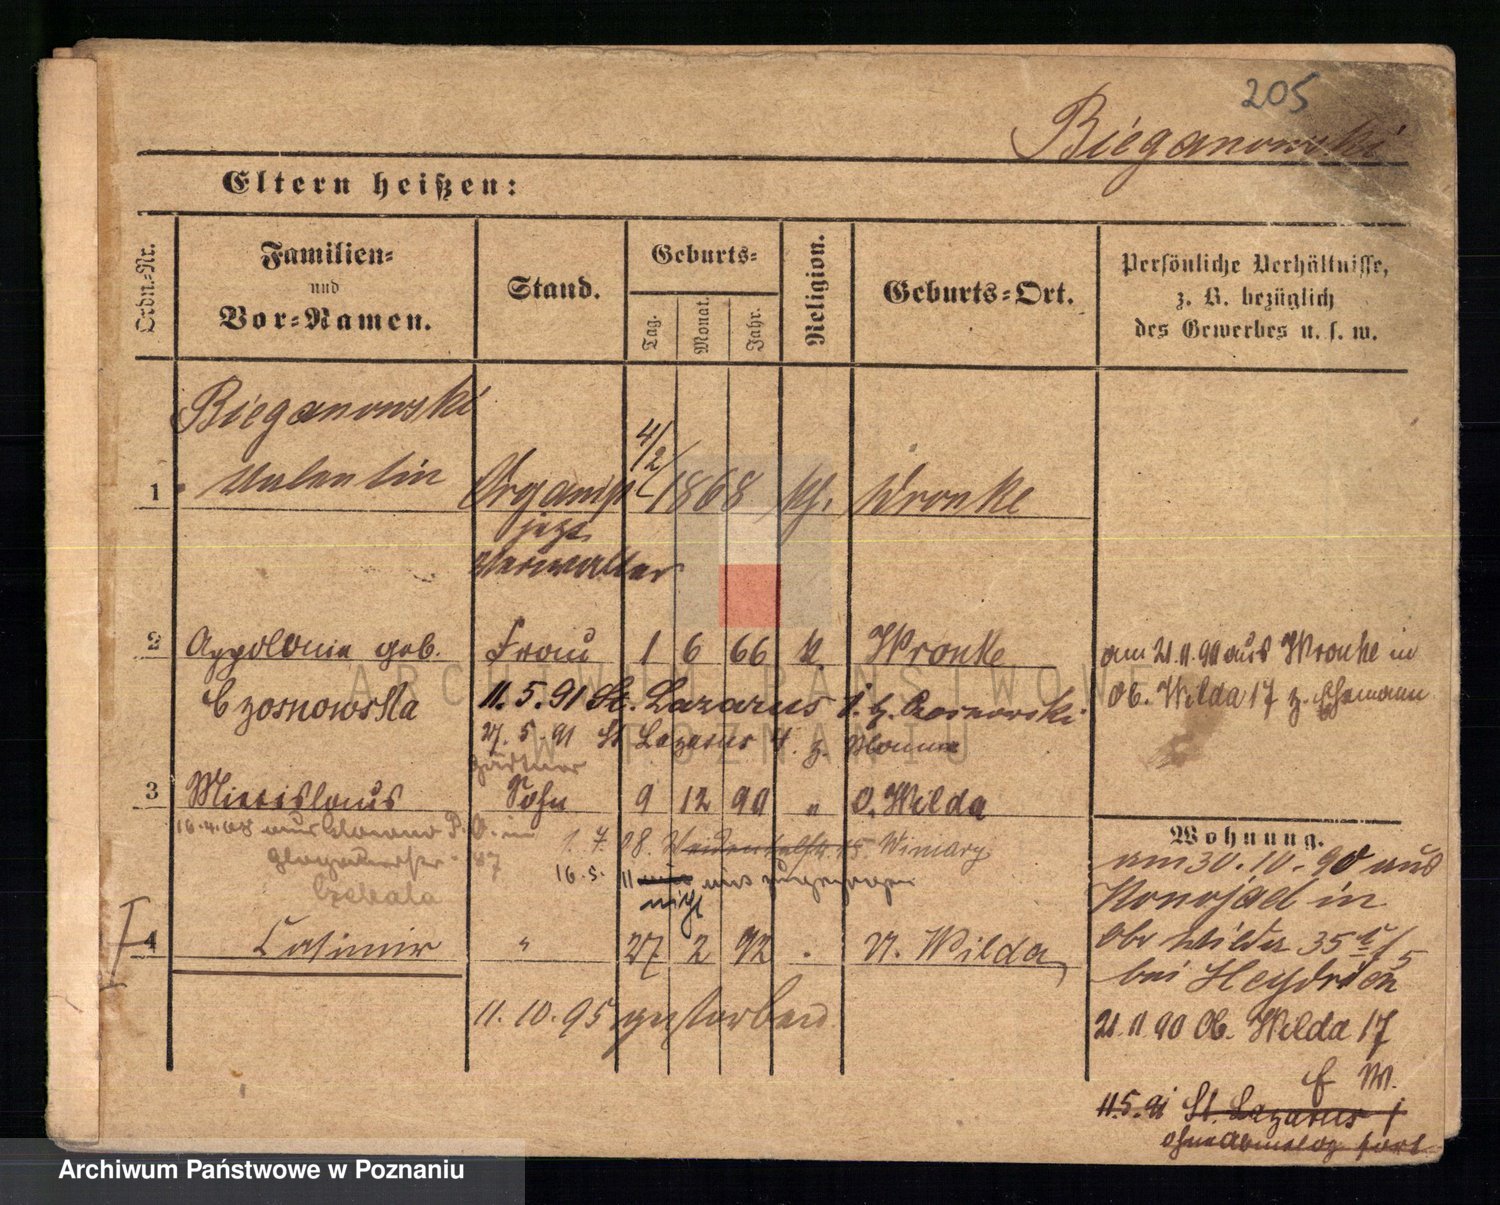 205
Bieganowski
Eltern heißen:
Ordn.-Nr.
Familien-
und
Vor-Namen.
Stand.
Geburts-
Tag.
Monat.
Jahr.
Religion.
Geburts-Ort.
Persönliche Verhältnisse,
z. B. bezüglich
des Gewerbes u. s. w.
Bieganowski
1 Valentin Organist 4/2 1868 Wronke
Verwalter
2 Appolonia geb. Frau 1 6 66 k. Wronke
Czosnowska
am 21.11.90 aus Wronke in
Ob. Wilda 17 z.
11.5.91 St. Lazarus
27.5.91 St. Lazarus 4. z.
Gärtner
3 Miecislaus Sohn 9 12 90 " O. Wilda
16.4.08 aus
1.7.08.
16.5.11
nicht
4 Casimir " 27 2 92 . U. Wilda
11.10.95 gestorben
Wohnung.
am 30.10.90 aus
Konojad in
Ober Wilda 35
bei Heydrich
21.11.90 Ob. Wilda 17
E. W.
11.5.91 St. Lazarus
ARCHIWUM PAŃSTWOWE
W POZNANIU
Archiwum Państwowe w Poznaniu